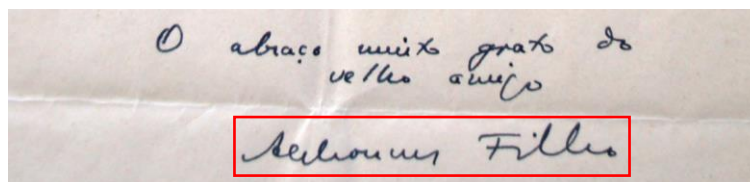 O abraço muito grato do
velho amigo
Alphonsus Filho